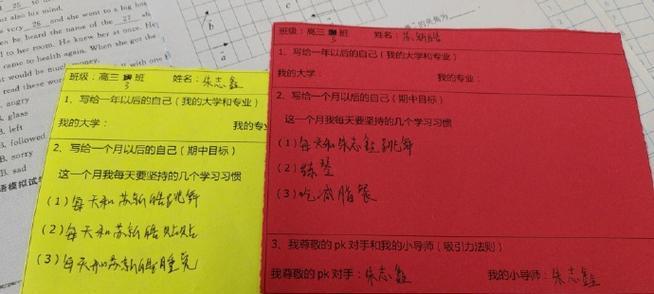 25
also his mind.
very 26 and she went to a big hos
he heard the name of the 27 sh
to her room. He knew her at once. He
came to health again. When she got the
would be much money.
read these wor
angry
glass
left
B. followed
B. sorry
B. sad
语模拟试
b
a
班级：高三 班 姓名：朱志鑫
1、写给一年以后的自己（我的大学和专业）
我的大学： 我的专
2、写给一个月以后的自己（期中目标）
这一个月我每天要坚持的几个学习习惯
（1）每天和苏新皓跳舞
（2）每天和苏新皓贴贴
（3）每天和苏新皓睡觉
班级：高三 班 姓名：苏新皓
1、写给一年以后的自己（我的大学和专业）
我的大学： 我的专业：
2、写给一个月以后的自己（期中目标）
这一个月我每天要坚持的几个学习习惯
（1）每天和朱志鑫跳舞
（2）练琴
（3）吃减脂餐
3、我尊敬的pk对手和我的小导师（吸引力法则）
我尊敬的pk对手：朱志鑫 我的小导师：朱志鑫